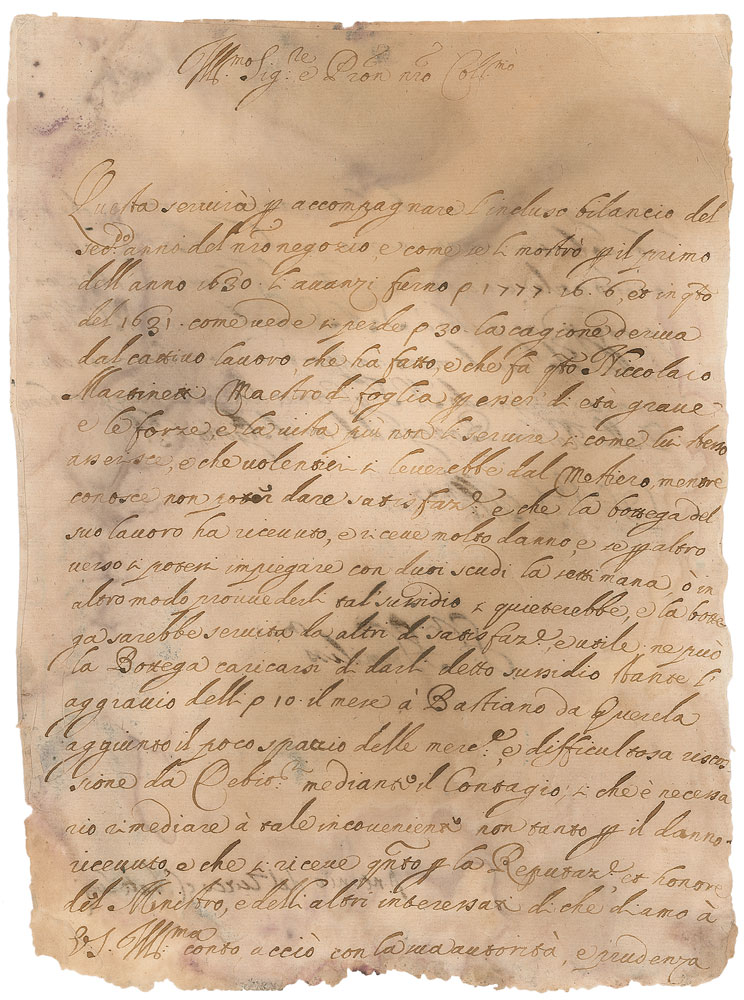 Ill.mo Sig.re e Pron nro Coll.mo
Questa servirà p accompagnare l incluso bilancio del
seco.do anno del nro negozio, e come se li mostrò p il primo
dell anno 1630. li avanzi furno p 1777. 16. 6, et in qto
del 1631. come vede si perde p 30. la cagione deriva
dal cattivo lavoro, che ha fatto, e che fa qto Niccolaio
Martinett Maestro di foglia p esser di età grave
e le forze, e la vista più non li servire si come lui stesso
asserisce, e che volentieri si leverebbe dal Mestiero, mentre
conosce non poter dare satisfaz.e e che la bottega del
suo lavoro ha ricevuto, e riceve molto danno, e se p altro
verso si potessi impiegare con duoi scudi la settimana, ò in
altro modo provvederli tal sussidio si quieterebbe, e la botte
ga sarebbe servita da altri di satisfaz.e, e utile; ne può
la Bottega caricarsi di darli detto sussidio stante l
aggravio delli p 10. il mese à Bastiano da Querela
aggiunto il poco spaccio delle merc.e, e difficultosa riscos
sione da Debit.i mediante il Contagio; si che è necessa
rio rimediare à tale incovenient non tanto p il danno
ricevuto, e che si riceve qnto p la Reputaz.e et honore
del Ministro, e delli altri interessati di che diamo à
V.S. Ill.ma conto acciò con la sua autorità, e prudenza